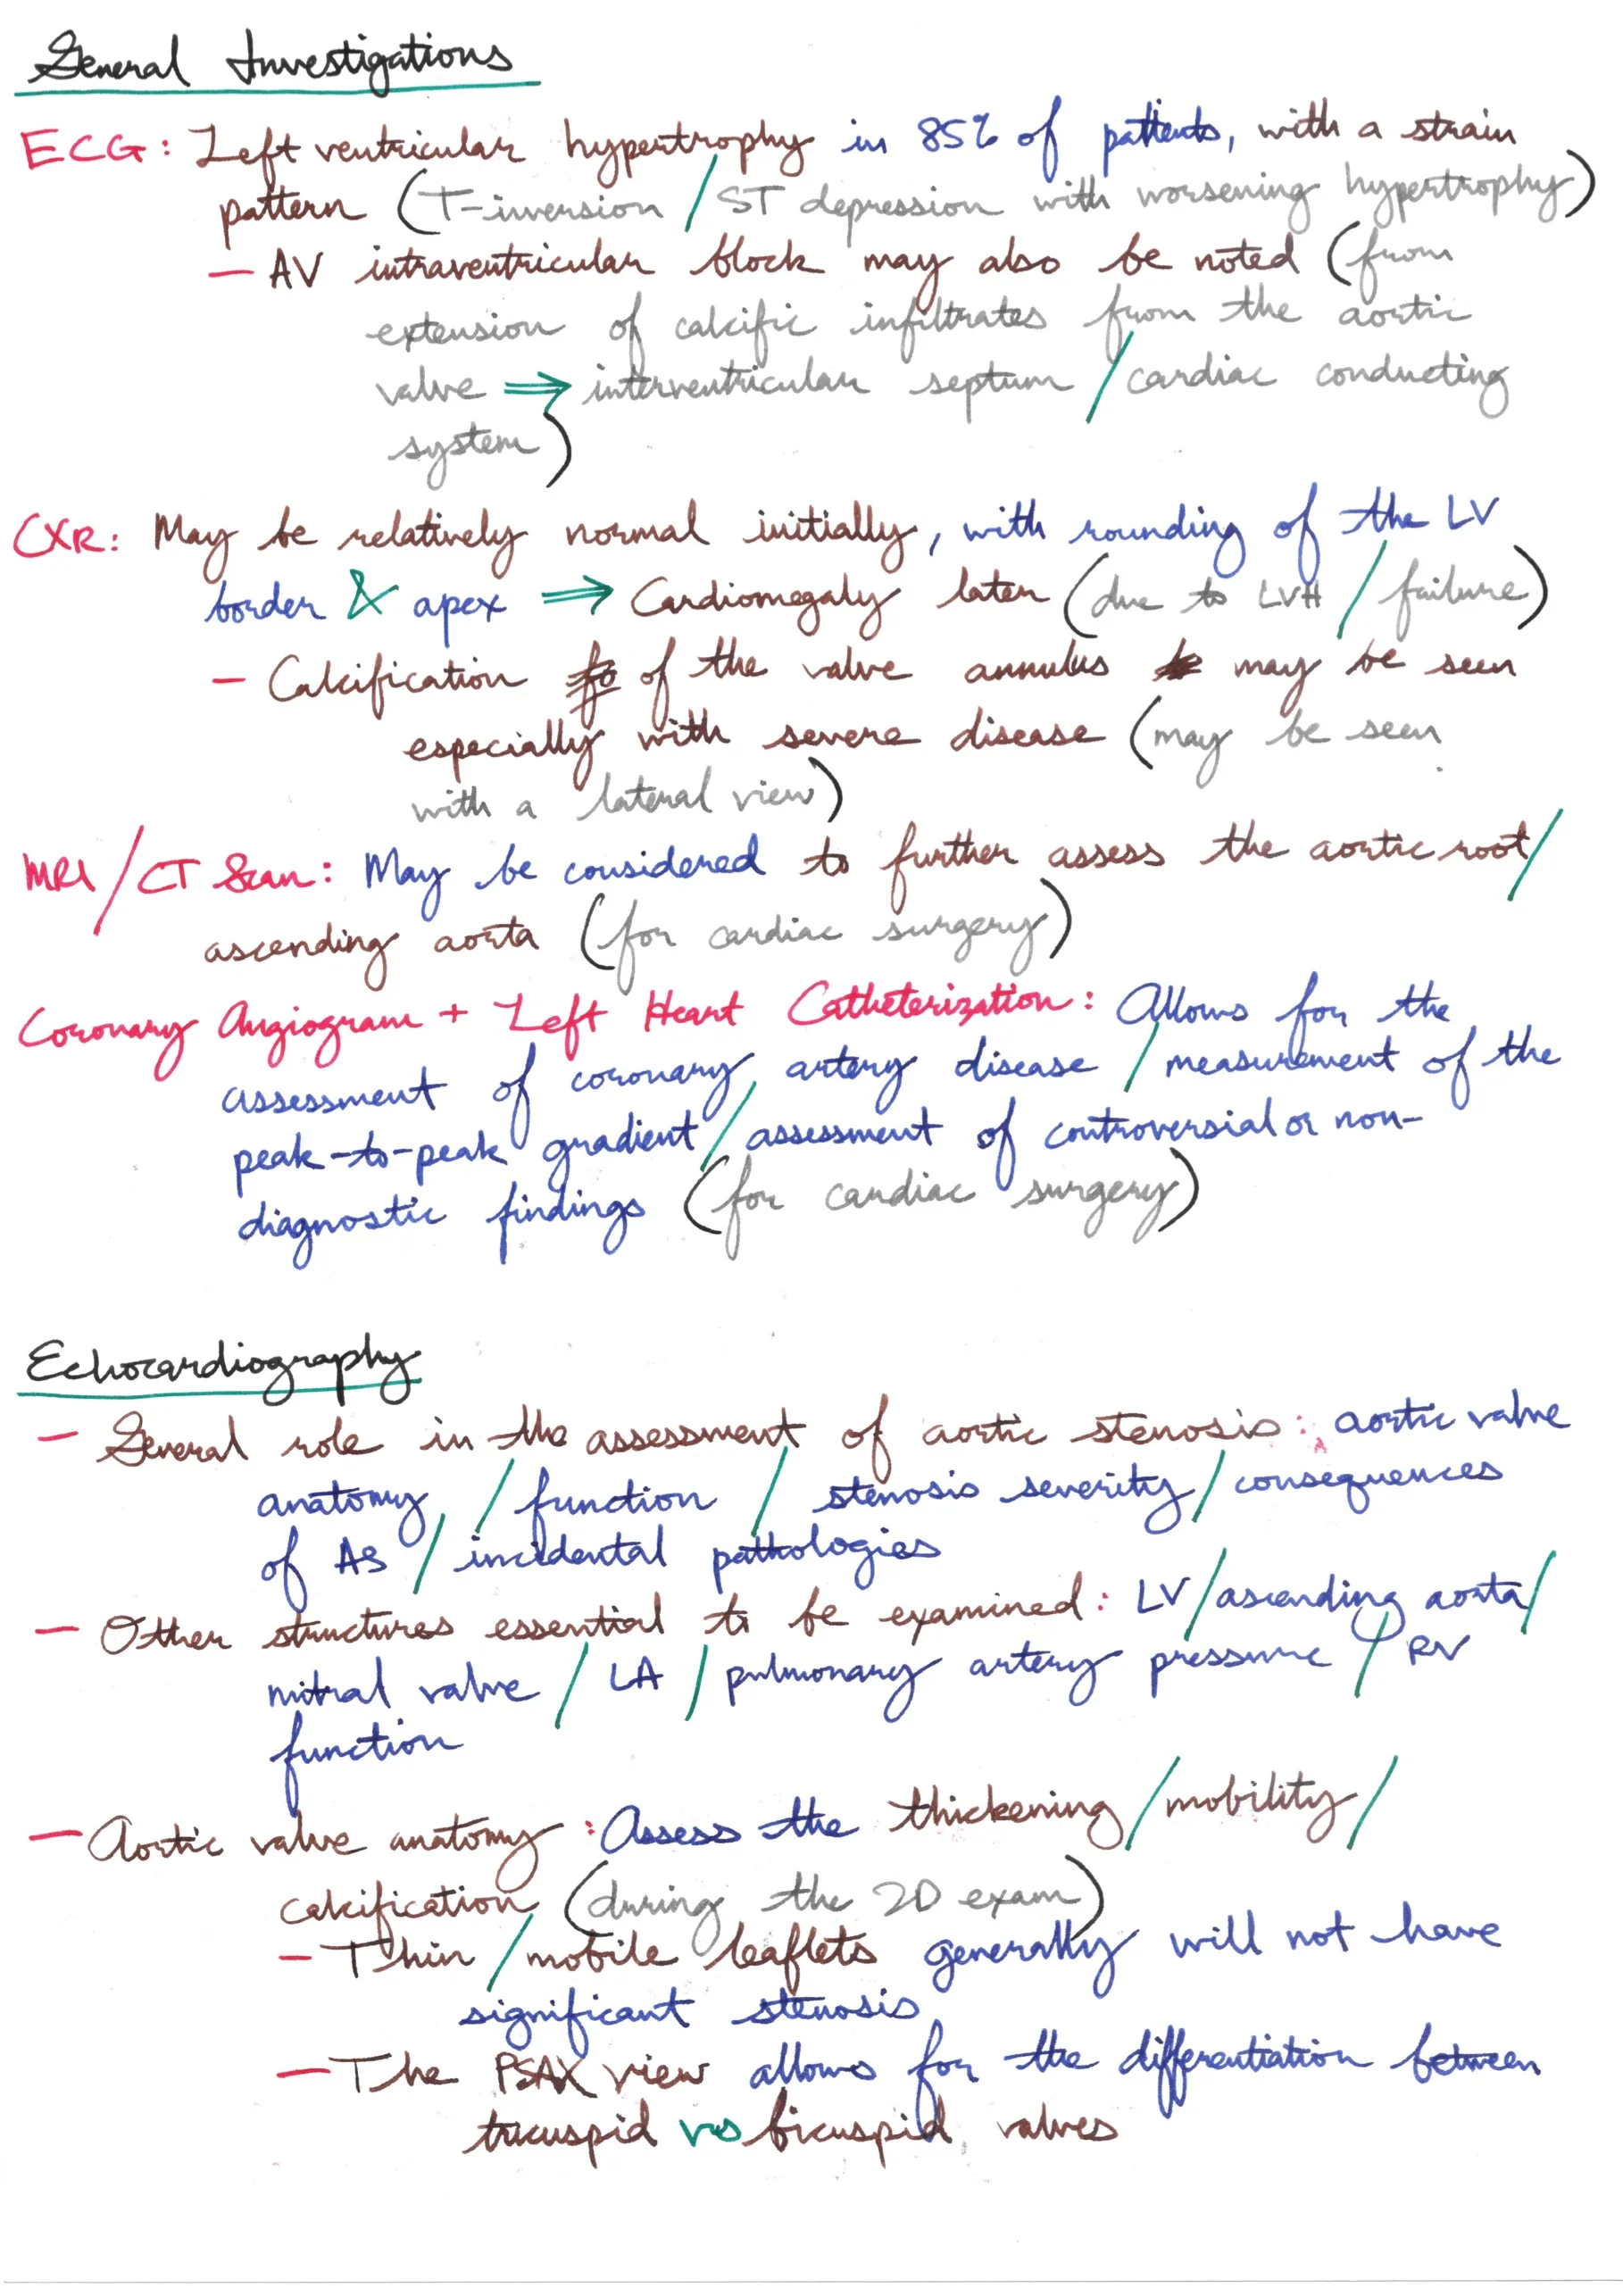 General Investigations
ECG: Left ventricular hypertrophy in 85% of patients, with a strain
pattern (T-inversion / ST depression with worsening hypertrophy)
— AV intraventricular block may also be noted (from
extension of calcific infiltrates from the aortic
valve ⇒ interventricular septum / cardiac conducting
system)
CXR: May be relatively normal initially, with rounding of the LV
border & apex ⇒ Cardiomegaly later (due to LVH / failure)
— Calcification of the valve annulus may be seen
especially with severe disease (may be seen
with a lateral view)
MRI / CT Scan: May be considered to further assess the aortic root /
ascending aorta (for cardiac surgery)
Coronary Angiogram + Left Heart Catheterization: Allows for the
assessment of coronary artery disease / measurement of the
peak-to-peak gradient / assessment of controversial or non-
diagnostic findings (for cardiac surgery)
Echocardiography
— General role in the assessment of aortic stenosis: aortic valve
anatomy / function / stenosis severity / consequences
of AS / incidental pathologies
— Other structures essential to be examined: LV / ascending aorta /
mitral valve / LA / pulmonary artery pressure / RV
function
— Aortic valve anatomy: Assess the thickening / mobility /
calcification (during the 2D exam)
— Thin / mobile leaflets generally will not have
significant stenosis
— The PSAX view allows for the differentiation between
tricuspid vs bicuspid valves